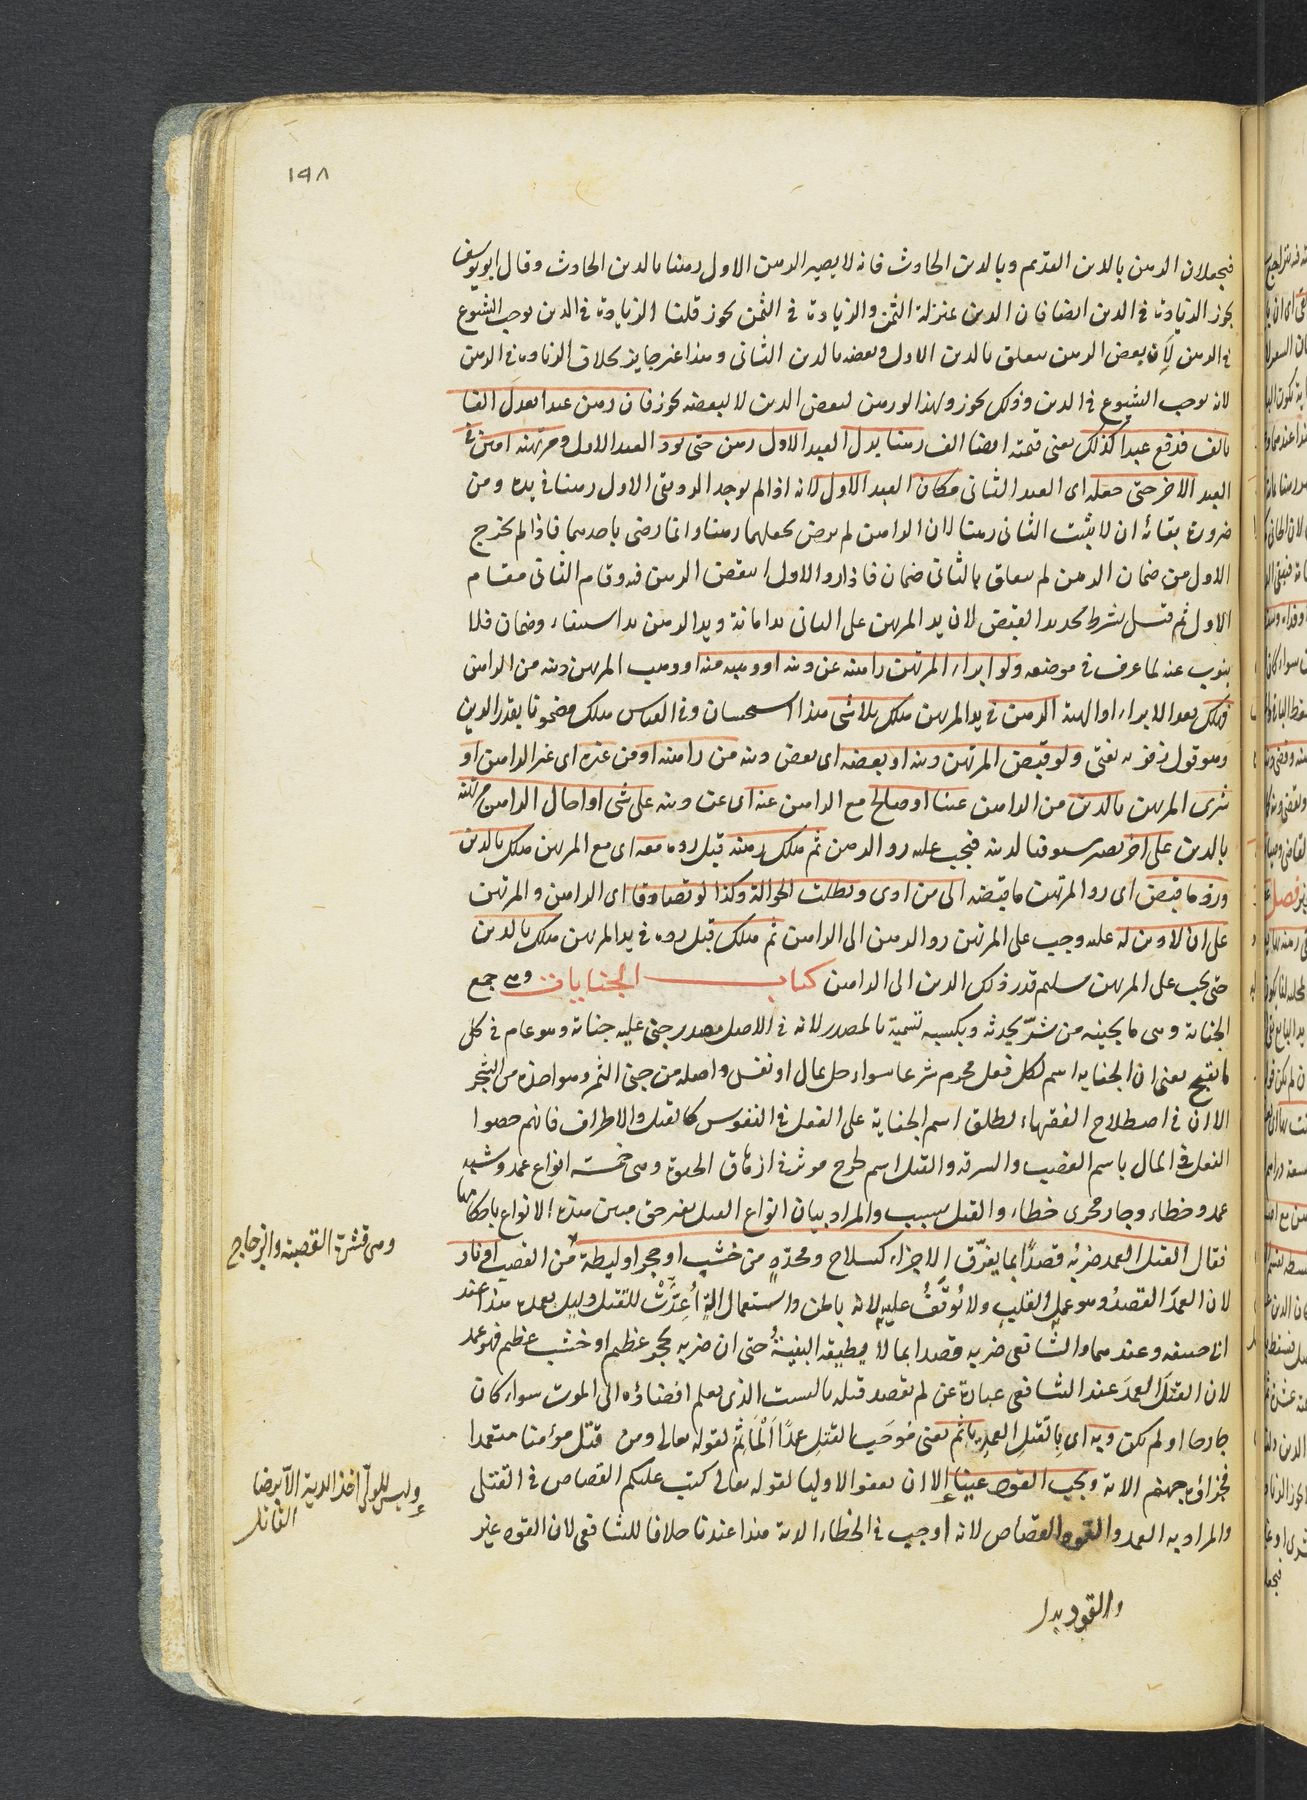 ١٩٨
فيجعلان الرهن بالدين القديم وبالدين الحادث فانه لا يصير الرهن الاول رهنا بالدين الحادث وقال ابو يوسف
يجوز الزيادة في الدين ايضا فان الدين بمنزلة الثمن والزيادة في الثمن يجوز قلنا الزيادة في الدين يوجب الشيوع
في الرهن لان بعض الرهن يتعلق بالدين الاول وبعضه بالدين الثاني وهذا غير جايز بخلاف الزيادة في الرهن
لانه يوجب الشيوع في الدين وذلك يجوز ولهذا لو رهن لبعض الدين لا لبعضه يجوز فان رهن عبدا يعدل الفا
بالف فدفع عبدا كذلك يعني قيمته ايضا الف رهنا بدل العبد الاول رهن حتى يرد العبد الاول ومرتهنه امين في
العبد الاخر حتى جعله اى العبد الثاني مكان العبد الاول لانه اذا لم يوجد الرد بقي الاول رهنا في يده ومن
ضرورة بقائه ان لا يثبت الثاني رهنا لان الراهن لم يرض بجعلهما رهنا وانما رضى باحدهما فاذا لم يخرج
الاول من ضمان الرهن لم يتعلق بالثاني ضمان فاذا رد الاول انتقض الرهن فيه وقام الثاني مقام
الاول ثم قيل يشترط تجديد القبض لان يد المرتهن على الثاني يد امانة ويد الرهن يد استيفاء وضمان فلا
ينوب عنه لما عرف في موضعه ولو ابراء المرتهن راهنه عن دينه او وهبه منه او وهب المرتهن دينه من الراهن
فهلك بعد الابراء او الهبة الرهن في يد المرتهن هلك بلا شى هذا استحسان وفي القياس هلك مضمونا بقدر الدين
وهو قول زفر به نفتى ولو قبض المرتهن دينه او بعضه اى بعض دينه من راهنه او من غيره اى غير الراهن او
شرى المرتهن بالدين من الراهن عينا او صالح مع الراهن عنه اى عن دينه على شى او احال الراهن مرتهنه
بالدين على اخر يصير مستوفيا لدينه فيجب عليه رد الرهن ثم هلك رهنه قبل رده معه اى مع المرتهن هلك بالدين
ورد ما قبض اى رد المرتهن ما قبضه الى من ادى وبطلت الحوالة وكذا لو تصادقا اى الراهن والمرتهن
على ان لا دين له عليه وجب على المرتهن رد الرهن الى الراهن ثم هلك قبل رده في يد المرتهن هلك بالدين
حتى يجب على المرتهن تسليم قدر ذلك الدين الى الراهن كتاب الجنايات وهى جمع
الجناية وهى ما يجنيه من شرّ يحدثه ويكسبه تسمية بالمصدر لانه في الاصل مصدر جنى عليه جناية وهو عام في كل
ما يقبح يعني ان الجناية اسم لكل فعل محرم شرعا سواء حل بمال او نفس واصله من جنى الثمر وهو اخذه من الشجر
الا ان في اصطلاح الفقهاء يطلق اسم الجناية على الفعل في النفوس كالقتل والاطراف فانهم خصوا
الفعل في المال باسم الغصب والسرقة والقتل اسم لجرح موثر في ازهاق الحيوة وهى خمسة انواع عمد وشبه
عمد وخطاء وجار مجرى خطاء والقتل بسبب والمراد بيان انواع القتل بغير حق فبين هذه الانواع باحكامها
فقال القتل العمد ضربه قصدًا بما يفرّق الاجزاء كسلاح ومحدّدٍ من خشب او حجر او ليطة من القصب او نار
لان العمد القصد وهو عمل القلب ولا يُوقَّفُ عليه لانه باطن واستعمال الةٍ اُعِدَّتْ للقتل دليل تعمده هذا عند
ابى حنيفه وعندهما والشافعى ضربه قصدا بما لا يطيقه البنيةُ حتى ان ضربه بحجر عظيم او خشب عظيم فهو عمد
لان القتلَ العمدَ عند الشافعى عبارة عن لم يقصد قتله بالسبب الذى يعلم افضاؤه الى الموت سواء كان
جارحا او لم يكن وبه اى بالقتلِ العمدِ ياثم يعنى مُوجَب القتلِ عمدًا اَلْمَاثَم لقوله تعالى ومن قتل مؤمنا متعمدا
فجزاؤه جهنم الاية ويجب القود عينا الا ان يعفو الاوليا لقوله تعالى كتب عليكم القصاص في القتلى
والمراد به العمد والقود القصاص لانه اوجب في الخطاء الدية هذا عندنا خلافا للشافعى لان القود غير
وهى قشرة القصبة والزجاج
وليس للولىّ اخذ الدية الاّ برضا
القاتل
والقود بدا